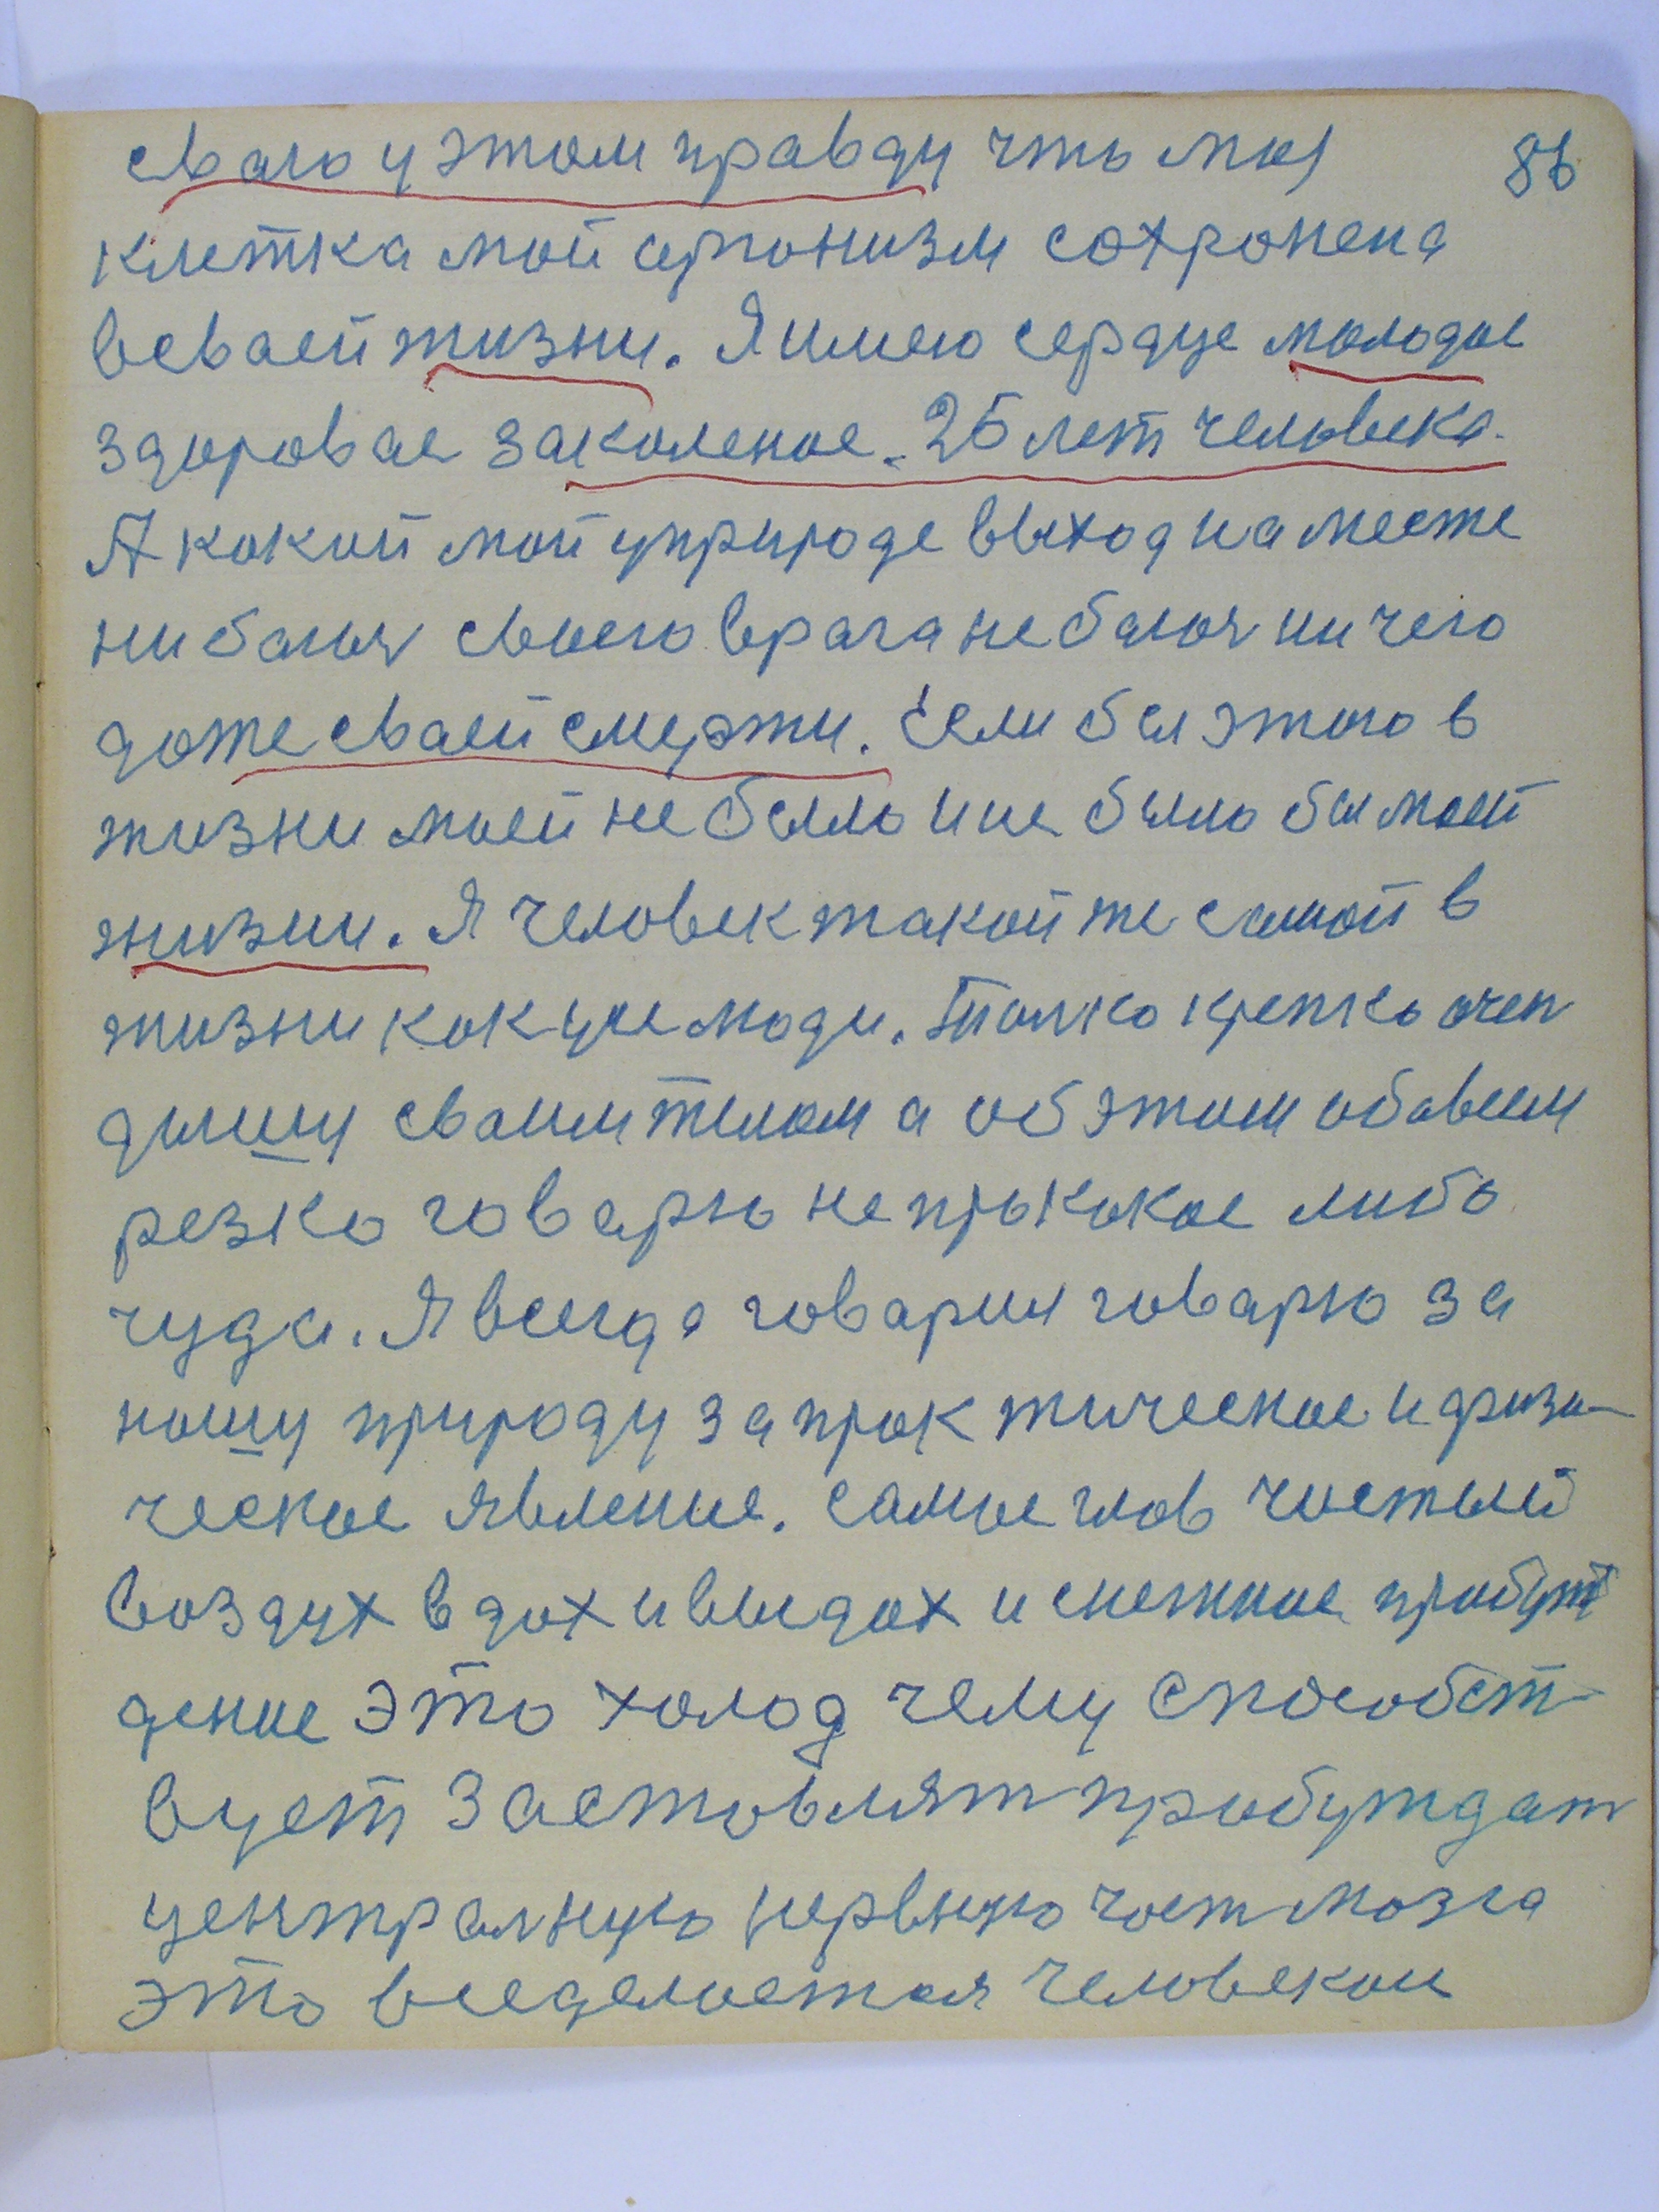 сваго у этом правду что моя 86
клетка мой организм сохронена
в сваей жизни. Я имею сердце молодое
здоровае заколеное. 25 лет человека.
А кокой мой у природе выход на месте
ни баюя своего врага не баюя ничего
доже сваей смерти. Если бы этого в
жизни моей не было и не было бы моей
жизни. Я человек такой же самой в
жизни как усе люди. Толко крепко очен
дышу сваим телом а об этом обовсем
резко говарю не про кокое либо
чудо. Я всегда говарил говарю за
нашу природу за проктическое и физи-
ческое явление. Самое глов чистый
воздух вдох и выдох и снежное пробуж
дение это холод чему способст-
вует застовлят пробуждат
центролную нервную част мозга
это все делоется человеком